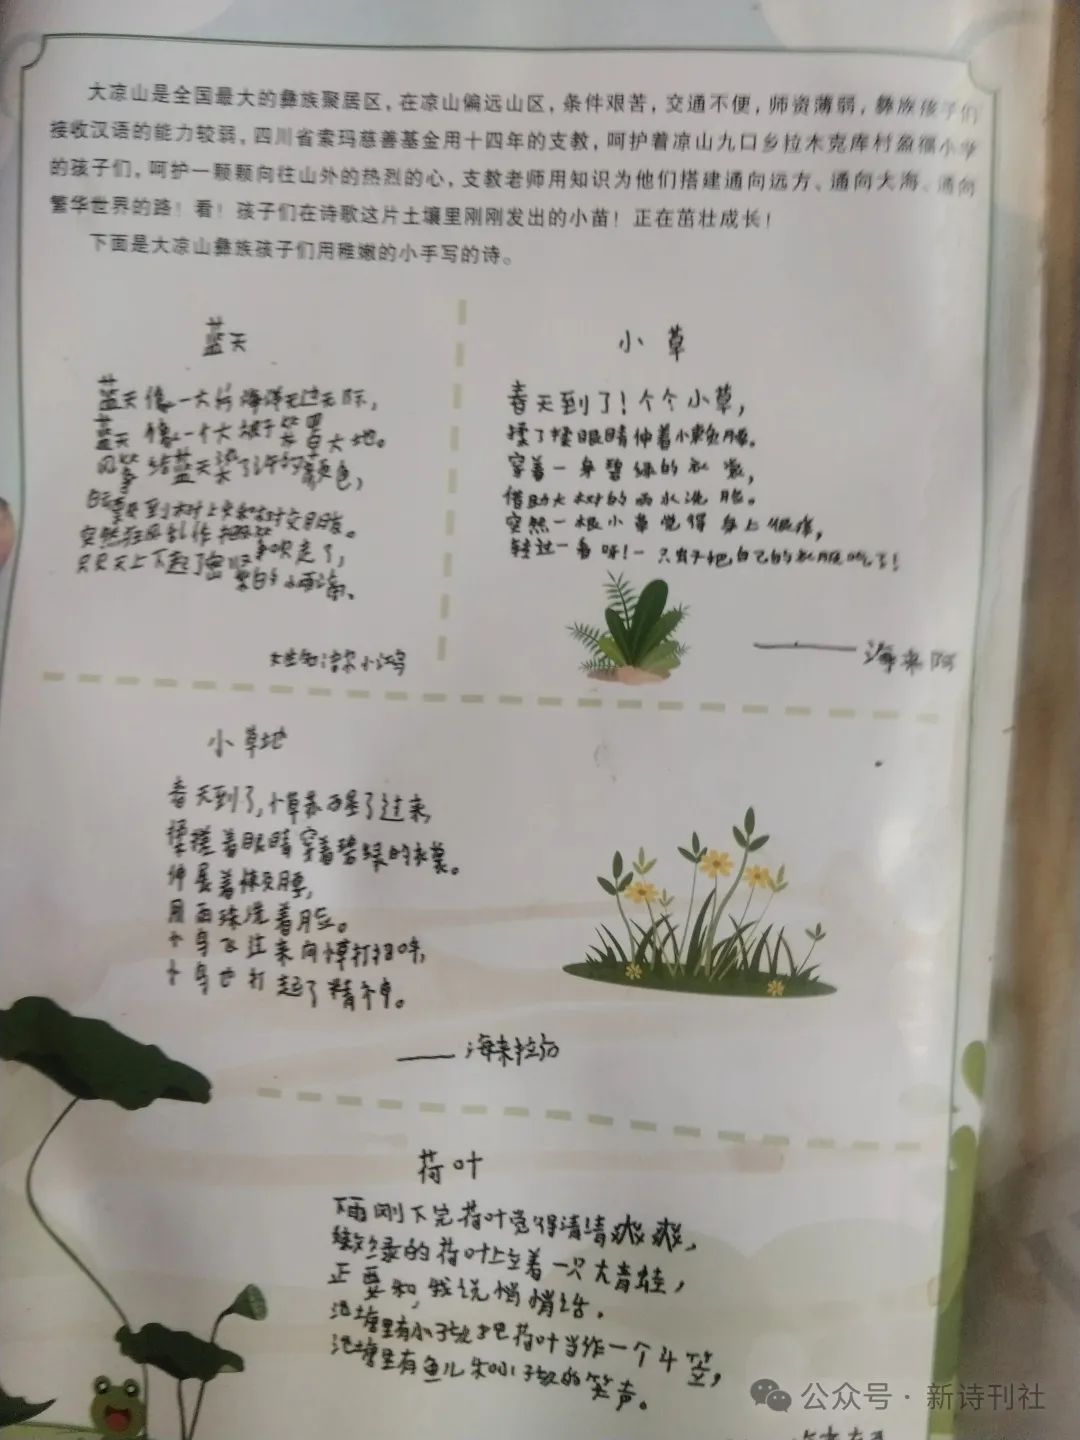 大凉山是全国最大的彝族聚居区，在凉山偏远山区，条件艰苦，交通不便，师资薄弱，彝族孩子们
接收汉语的能力较弱，四川省索玛慈善基金用十四年的支教，呵护着凉山九口乡拉木克库村盈福小学
的孩子们，呵护一颗颗向往山外的热烈的心，支教老师用知识为他们搭建通向远方、通向大海、通向
繁华世界的路！看！孩子们在诗歌这片土壤里刚刚发出的小苗！正在茁壮成长！
下面是大凉山彝族孩子们用稚嫩的小手写的诗。
蓝天
蓝天像一大片海洋无边无际，
蓝天像一个大被子笼罩大地。
给蓝天染了许多颜色，
突然狂风乱作把
小雨滴。
小草
春天到了！个个小草，
揉了揉眼睛伸着小懒腰。
穿着一身碧绿的衣裳，
借助大树的雨水洗脸。
突然一根小草觉得身上很痒，
转过一看呀！一只虫子把自己的衣服吃了！
——海来阿
小草地
春天到了，小草苏醒了过来，
揉搓着眼睛穿着碧绿的衣裳。
伸展着懒腰，
用雨珠洗着脸。
小鸟飞过来向小草打招呼，
小鸟也打起了精神。
——海来拉
荷叶
下雨刚下完荷叶觉得清清爽爽，
嫩绿的荷叶上立着一只大青蛙，
正要和我说悄悄话。
池塘里有小孩把荷叶当作一个斗笠，
池塘里有鱼儿和小孩的笑声。
公众号·新诗刊社